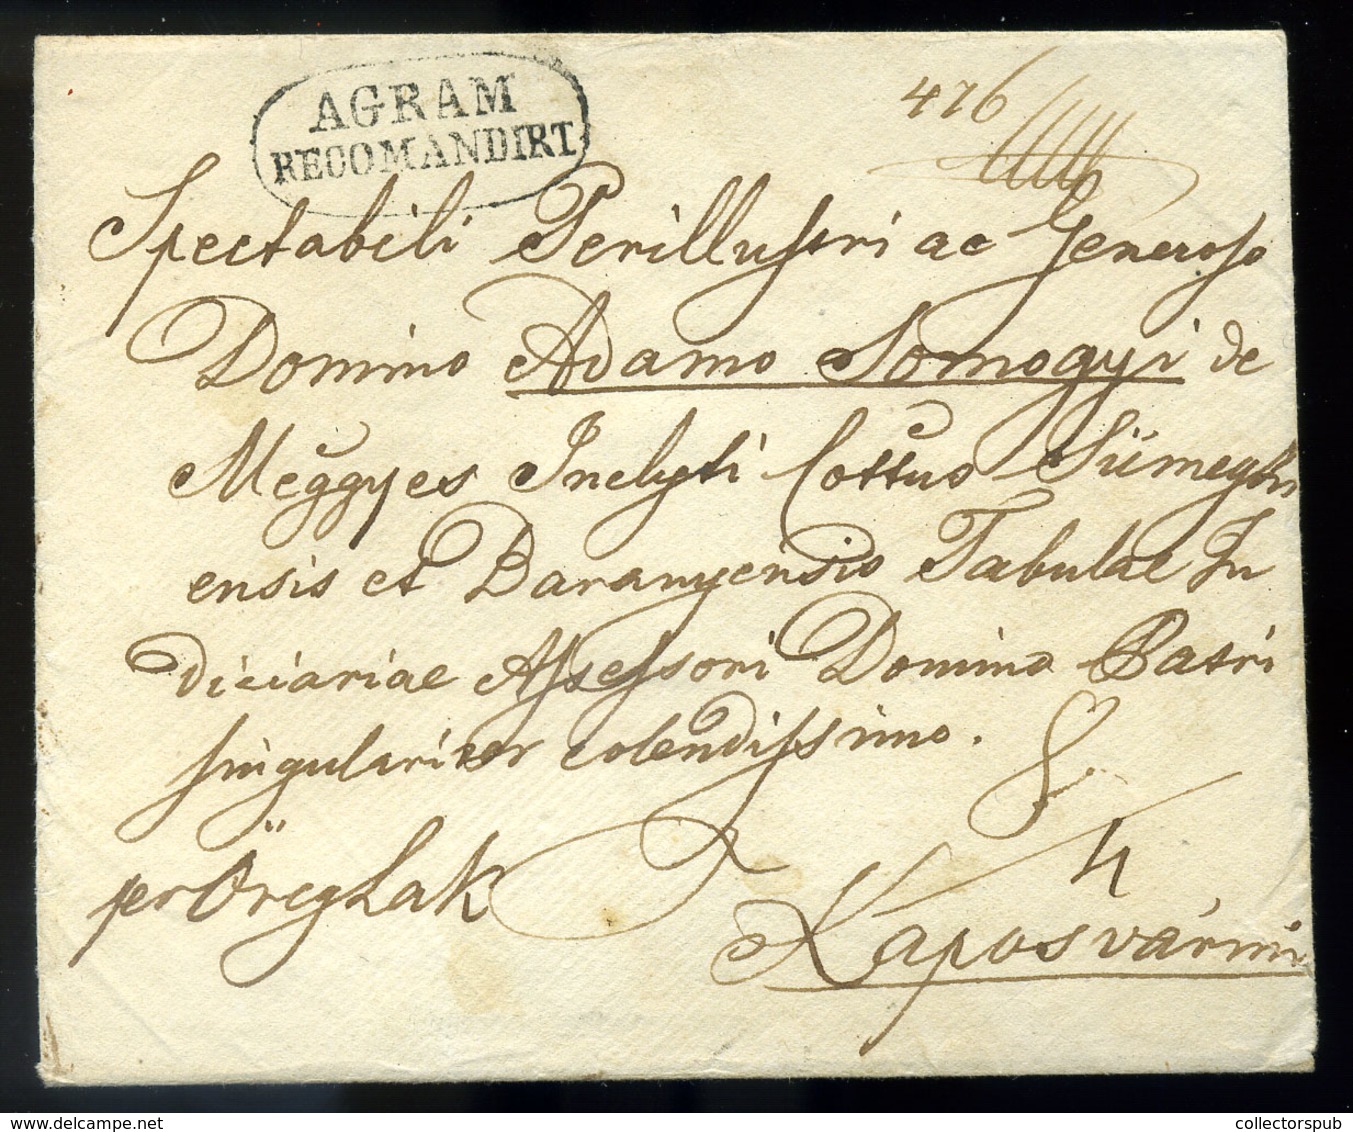 AGRAM
RECOMANDIRT
476
Spectabili Perillustri ac Generoso
Domino Adamo Somogyi de
Meggyes Inclyti Cottus Sümegh
ensis et Baranyensis Tabulae Iu
diciariae Assessori Domino Patri
singulariter colendissimo.
per Öreglak
4
Kaposvárini
collectorspub.com